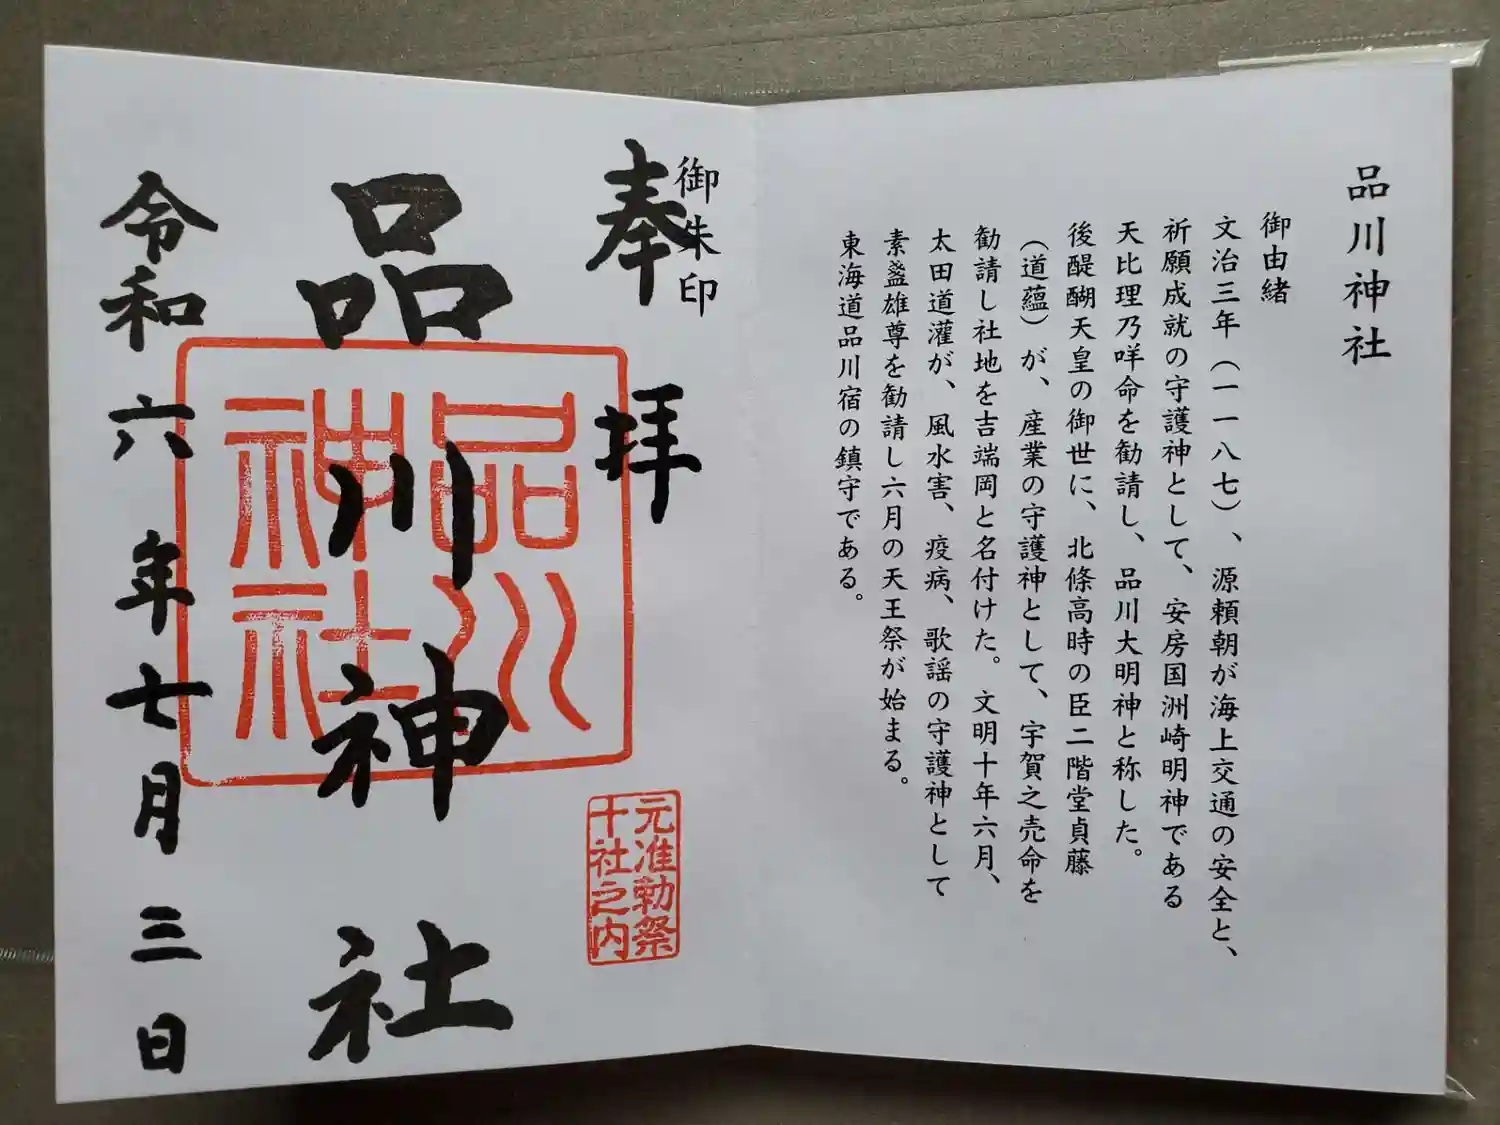 品川神社
御由緒
文治三年(一一八七)、源頼朝が海上交通の安全と、
祈願成就の守護神として、安房国洲崎明神である
天比理乃咩命を勧請し、品川大明神と称した。
後醍醐天皇の御世に、北條高時の臣二階堂貞藤
(道蘊)が、産業の守護神として、宇賀之売命を
勧請し社地を吉端岡と名付けた。文明十年六月、
太田道灌が、風水害、疫病、歌謡の守護神として
素盞雄尊を勧請し六月の天王祭が始まる。
東海道品川宿の鎮守である。
御朱印
奉拝
品川神社
品川
神社
元准勅祭
十社之内
令和六年七月三日